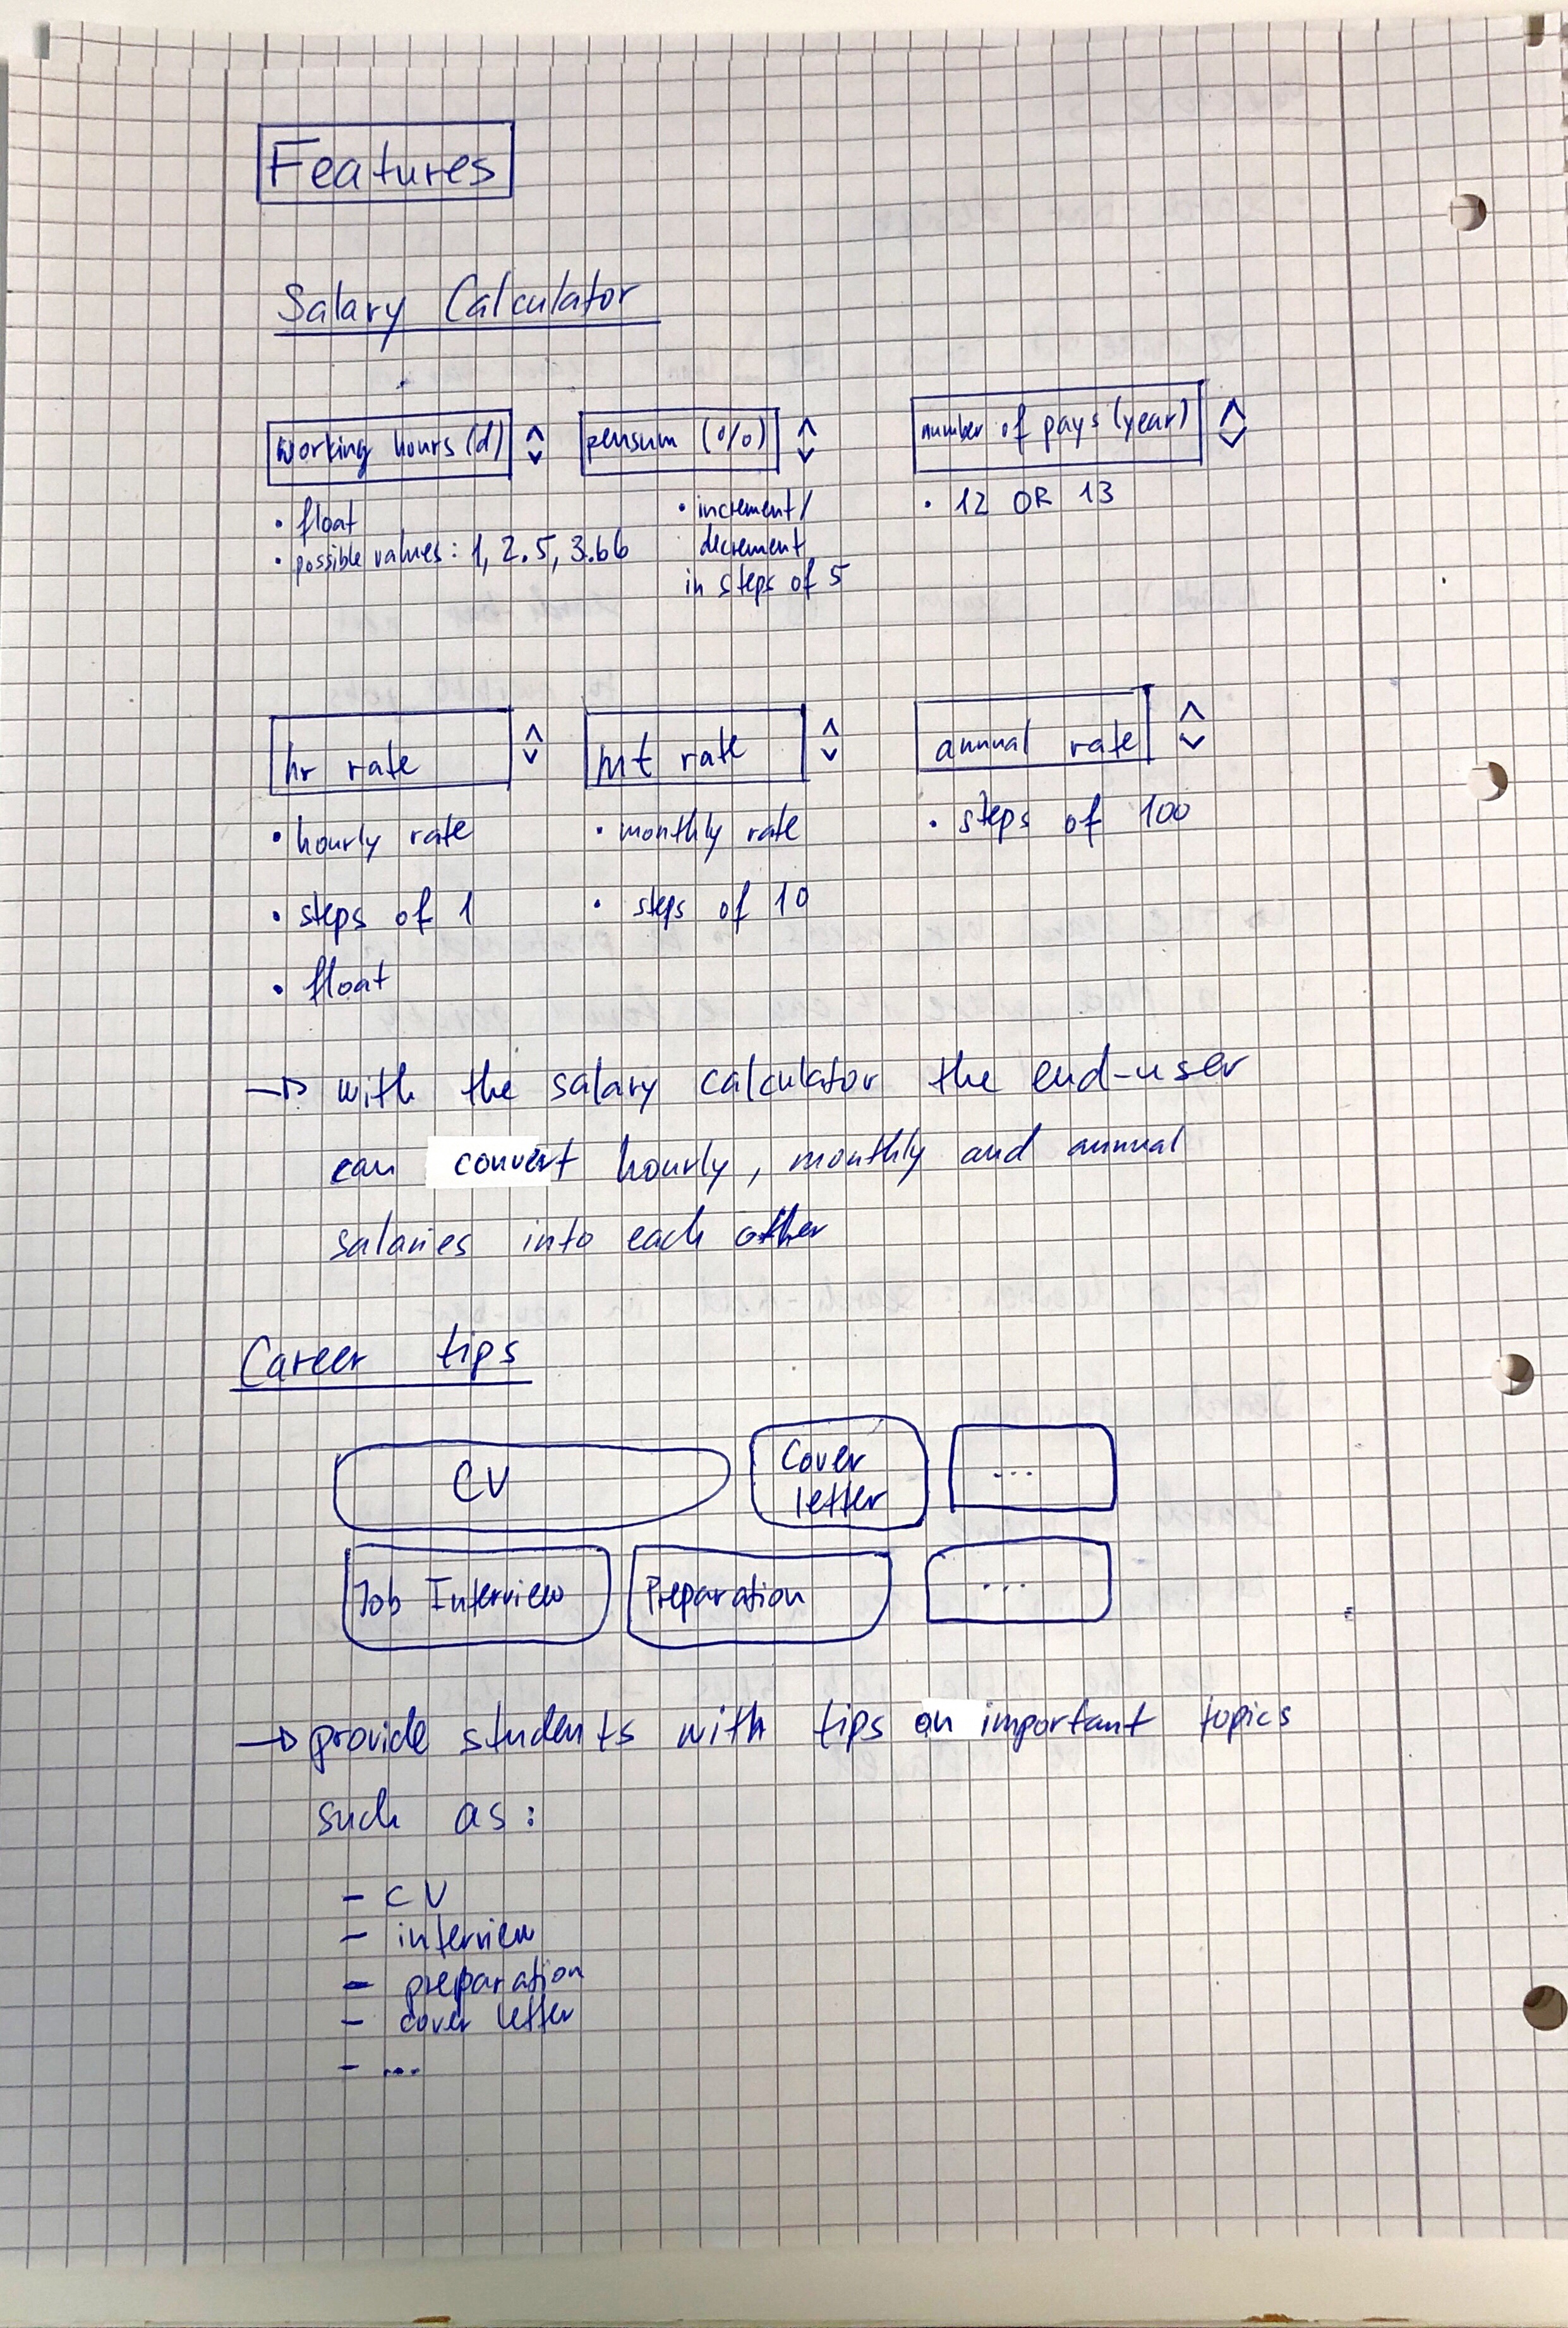 Features
Salary Calculator
working hours (d)
pensum (%)
number of pays (year)
• float
• possible values: 1, 2.5, 3.66
• increment/
decrement
in steps of 5
• 12 OR 13
hr rate
mt rate
annual rate
• hourly rate
• steps of 1
• float
• monthly rate
• steps of 10
• steps of 100
→ with the salary calculator the end-user
can convert hourly, monthly and annual
salaries into each other
Career tips
CV
Cover
letter
...
Job Interview
Preparation
...
→ provide students with tips on important topics
such as:
- CV
- interview
- preparation
- cover letter
- ...